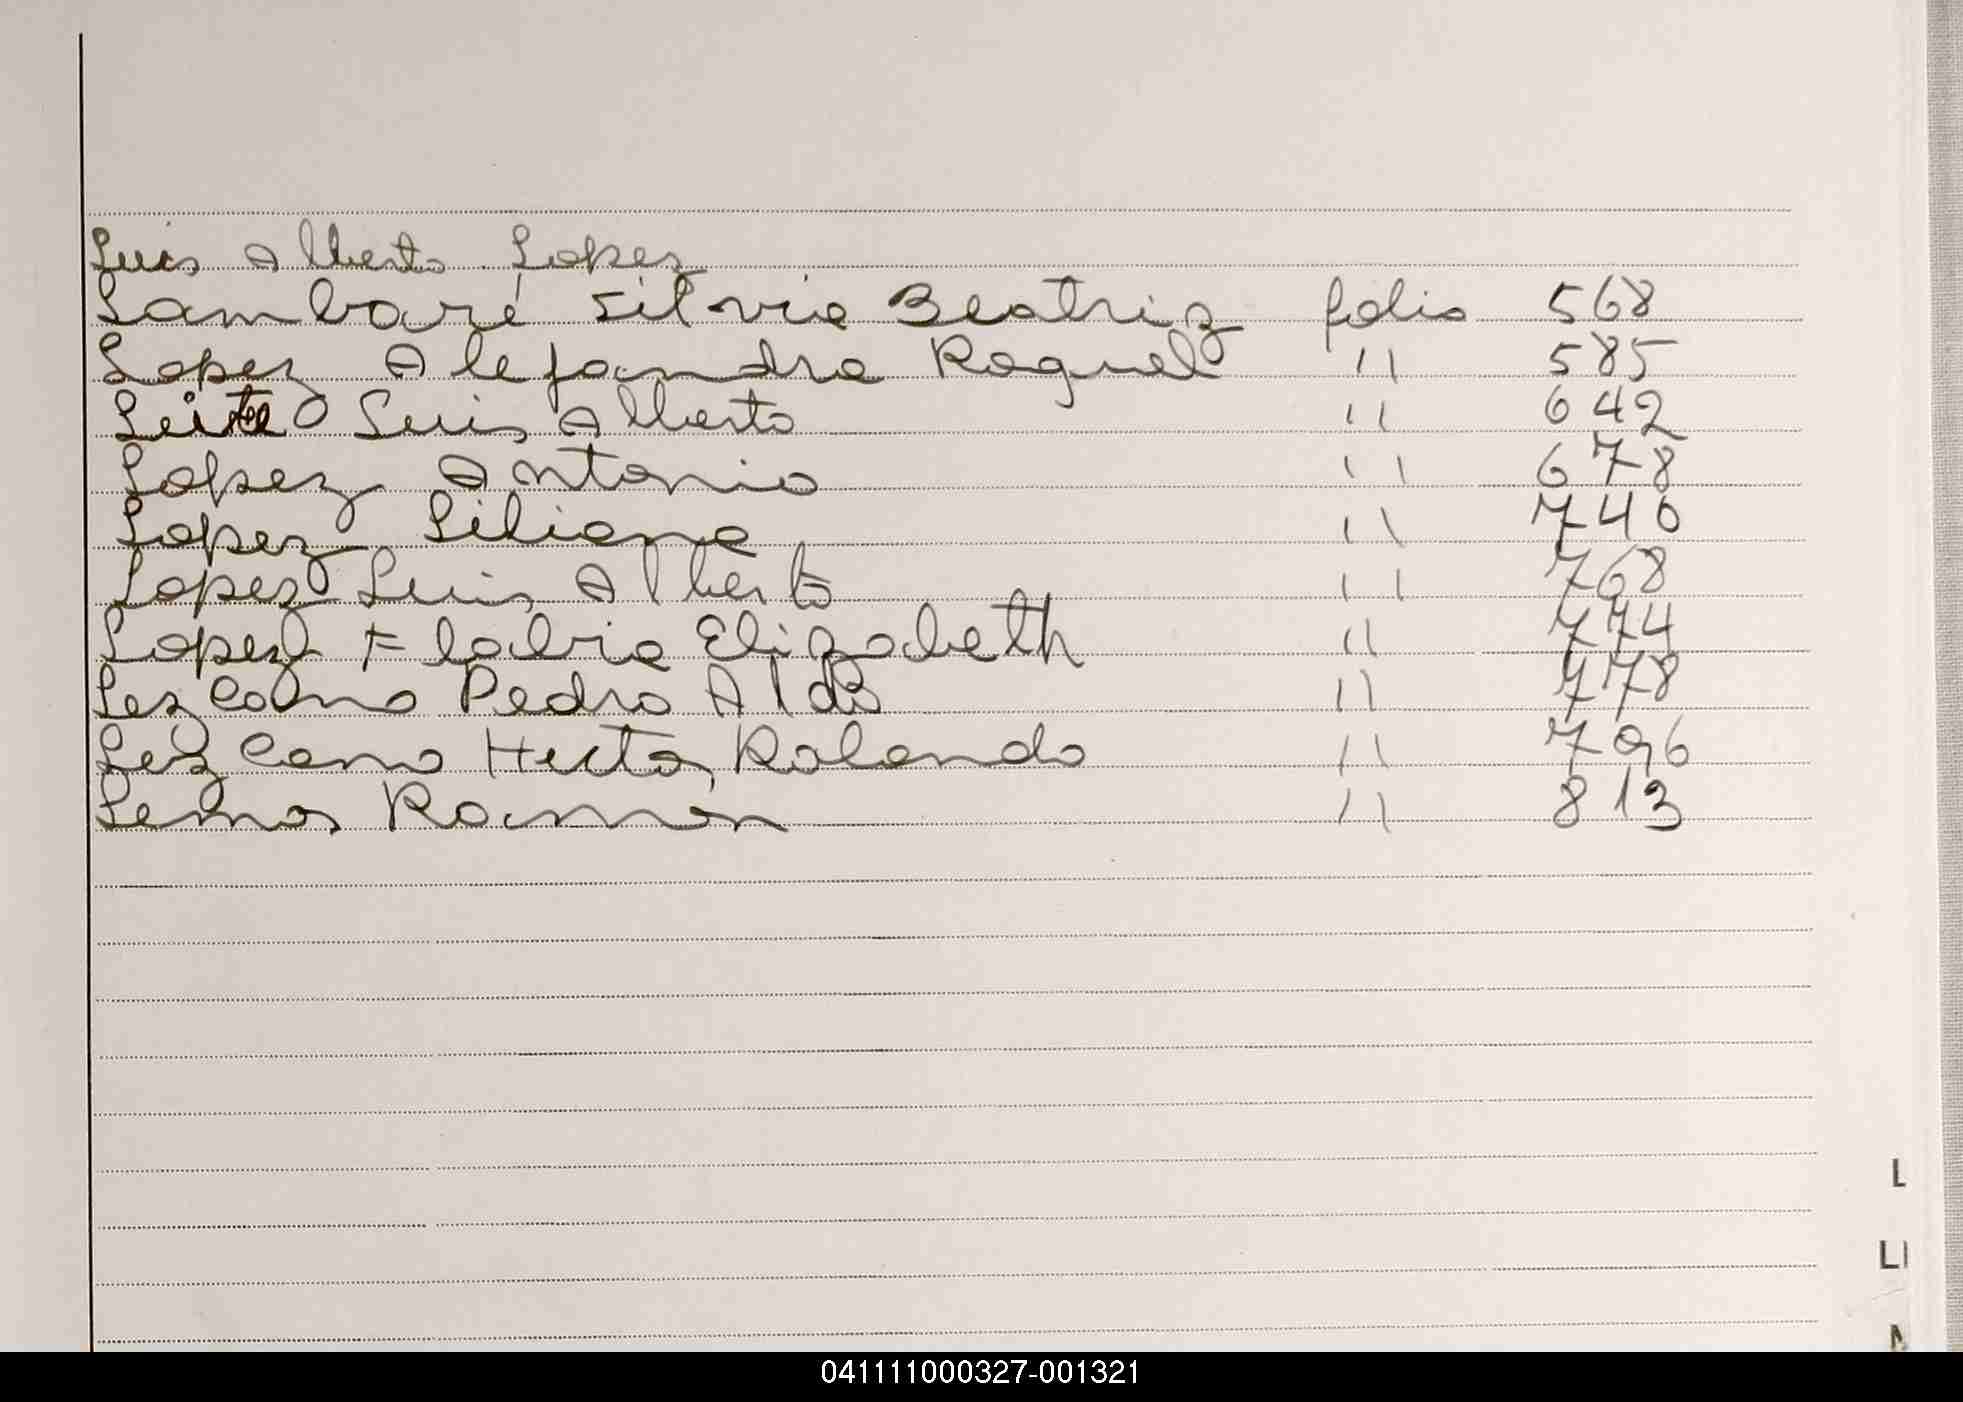 Luis Alberto Lopez
Lambaré Silvia Beatriz folio 568
Lopez Alejandra Raquel " 585
Leite Luis Alberto " 642
Lopez Antonio " 678
Lopez Liliana " 740
Lopez Luis Alberto " 768
Lopez Flabia Elizabeth " 774
Lezcano Pedro Aldo " 778
Lezcano Hector Rolando " 796
Lemos Ramón " 813
L
LI
041111000327-001321